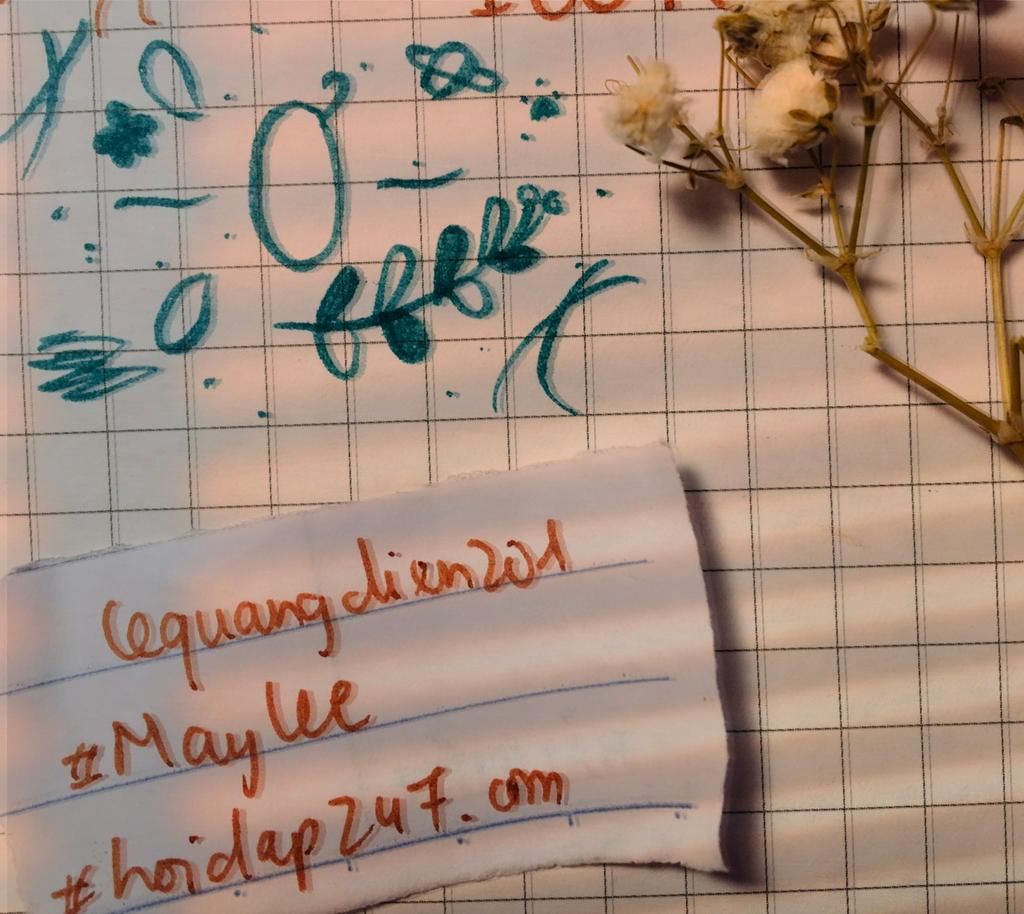 lequangdien201
#MayLee
#hoidap247.com